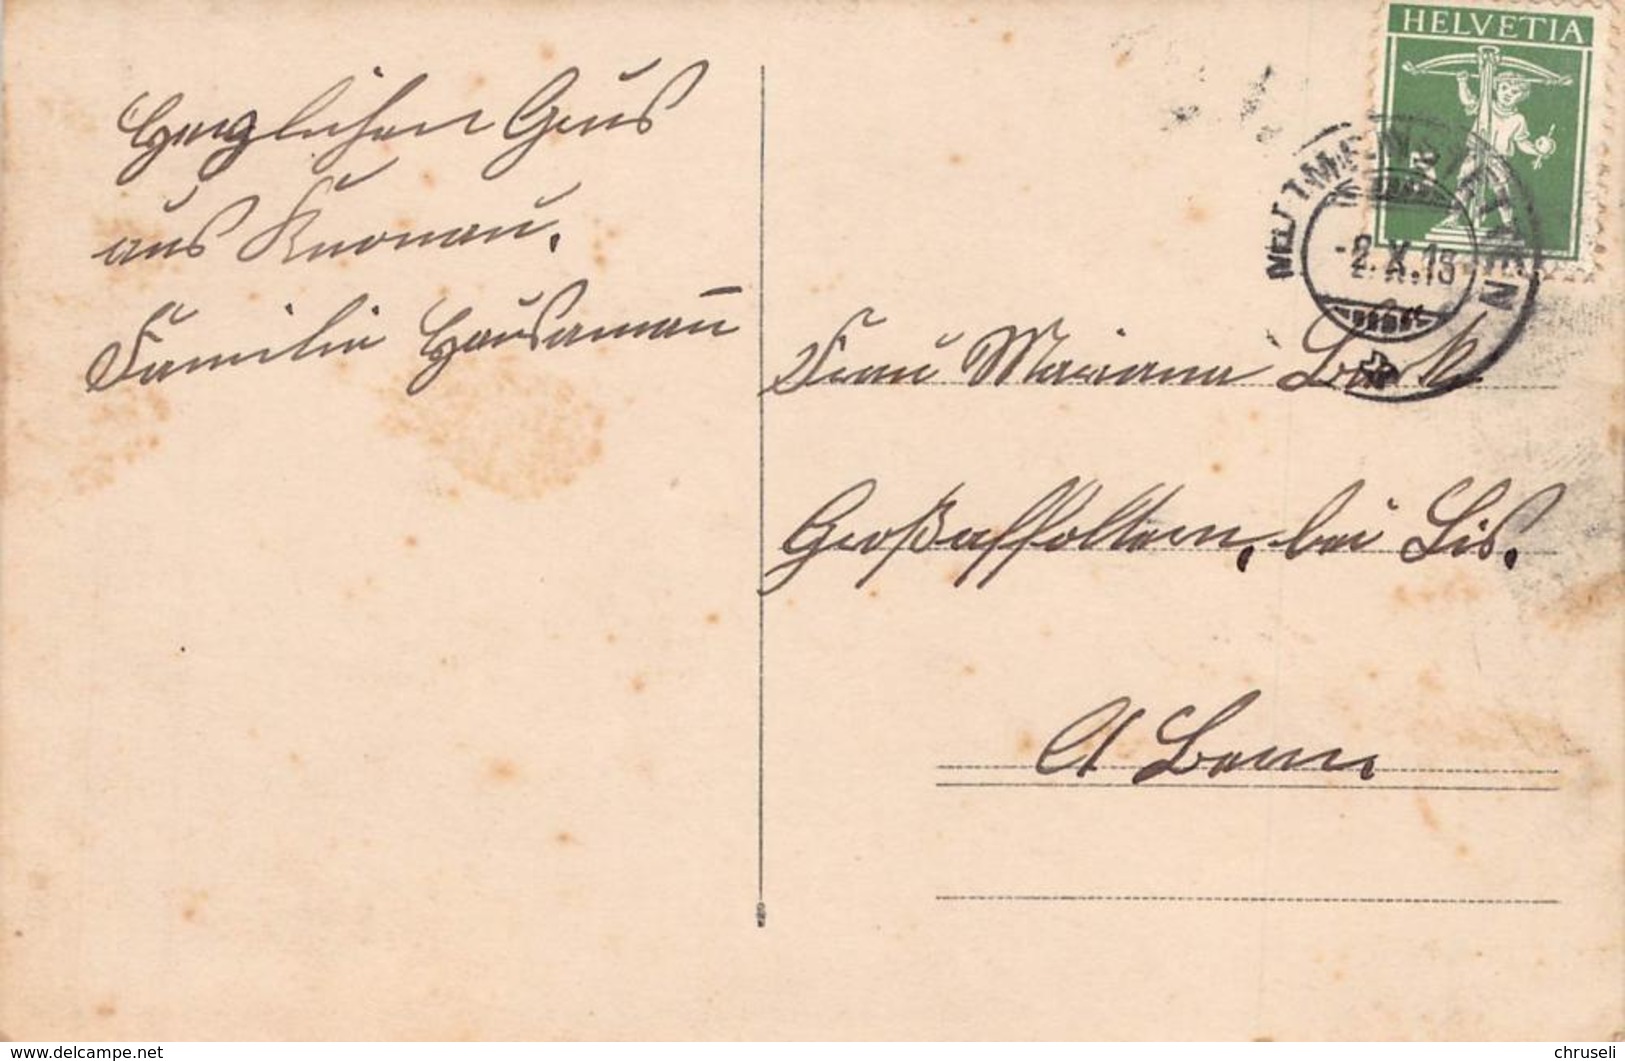 Herzlichen Grus
aus Knonau.
Familie Hausaman̄
HELVETIA
5
METTMENSTETTEN
-2.X.13
Frau Mariana
Großaffoltern, bei Lis.
Bern.
www.delcampe.net
chruseli